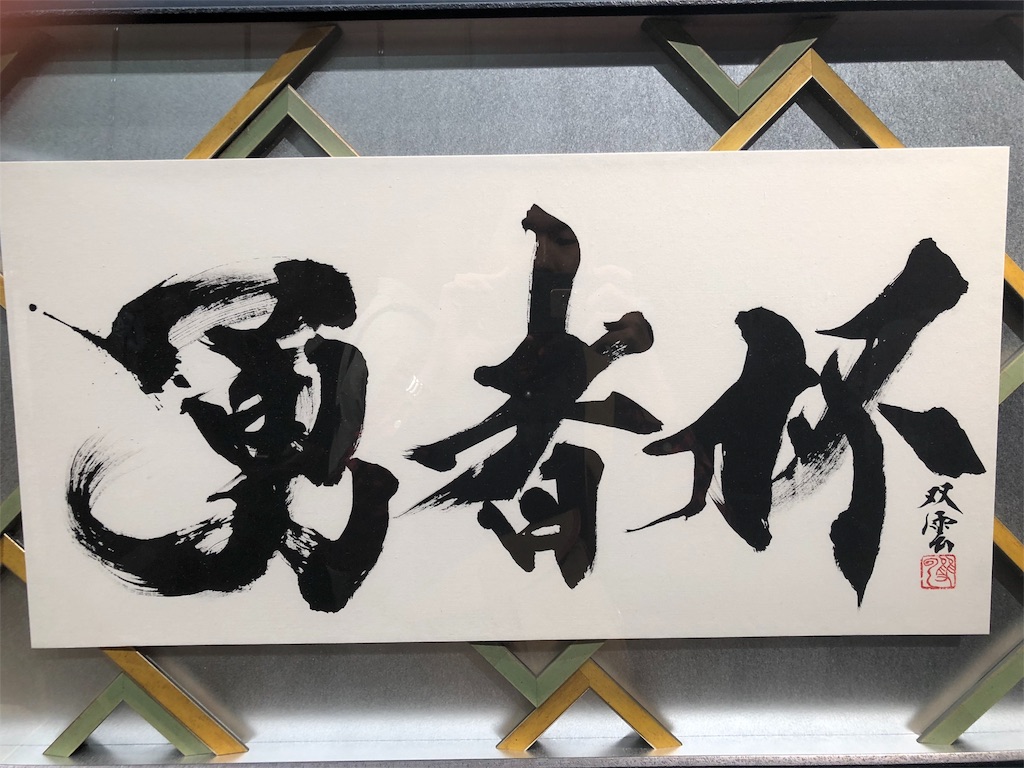 勇者杯
双雲